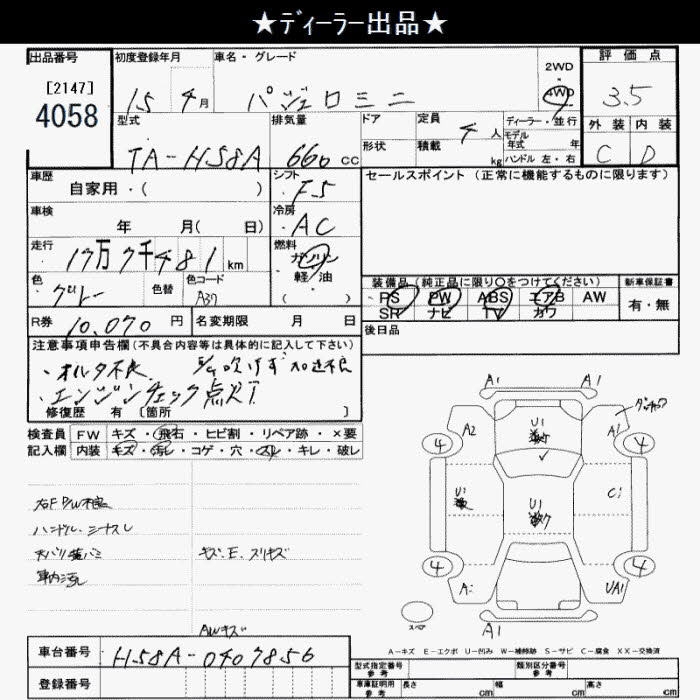 ★ディーラー出品★
出品番号
[2147]
4058
初度登録年月
15 年 4 月
車名・グレード
パジェロミニ
2WD
・
4WD
評価点
3.5
型式
TA-H58A
排気量
660 cc
ドア
形状
定員
4 人
積載
kg
ディーラー・並行
モデル
年式 年
ハンドル 左・右
外装 内装
C D
車歴
自家用・( )
シフト
F5
セールスポイント (正常に機能するものに限ります)
車検
年 月( 日)
冷房
AC
走行
17万7千481 km
燃料
ガソリン
軽・油
( )
色
グレー
色替
色コード
A37
装備品 (純正品に限り○をつけてください)
PS PW ABS エアB AW
SR ナビ TV カワ
新車保証書
有・無
R券 10,070 円
名変期限 月 日
後日品
注意事項申告欄(不具合内容等は具体的に記入して下さい)
・オルタ不良 E/G吹けず加速不良
・エンジンチェック点灯
修復歴 有 〔箇所 〕
検査員 FW キズ・飛石・ヒビ割・リペア跡・×要
記入欄 内装 キズ・汚れ・コゲ・穴・スレ・キレ・破レ
右F P/W不良
ハンドル、シートスレ
車内汚れ
キズ、E、スリキズ
AWキズ
A1 A1
A2 U1 A1
4 4
U1 U1 C1
4 4
UA1
A1
スペア
A-キズ E-エクボ U-凹み W-補修跡 S-サビ C-腐食 XX-交換済
車台番号 H58A-0407856
登録番号
型式指定番号
参考
類別区分番号
参考
車庫証明用
参考
長さ cm 幅 cm 高さ cm